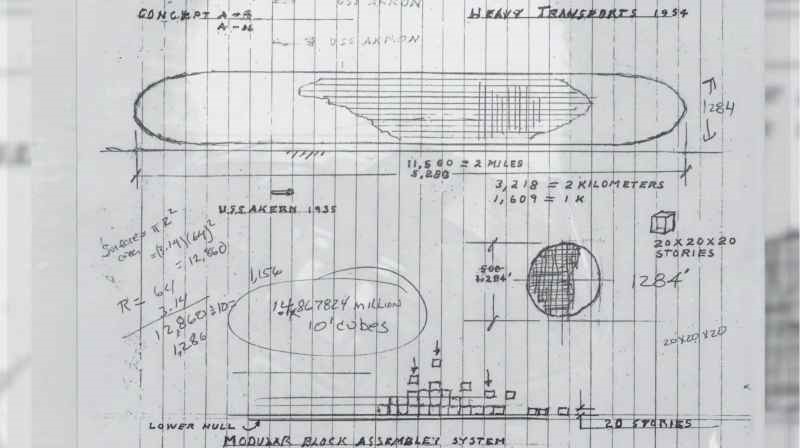 USS AKRON
CONCEPT A-8
A-M
HEAVY TRANSPORTS 1954
& USS AKRON
1284
11,560 = 2 MILES
5,280
3,218 = 2 KILOMETERS
1,609 = 1 K
USS AKERN 1935
Surface = π R²
area = (3.14)(64)²
= 12,860
R = 64
3.14
12,860 ÷ 10 =
1,286
1,156
14,867824 MILLION
10' CUBES
20X20X20
STORIES
1,284'
1284'
20X20X20
LOWER HULL
20 STORIES
MODULAR BLOCK ASSEMBLEY SYSTEM